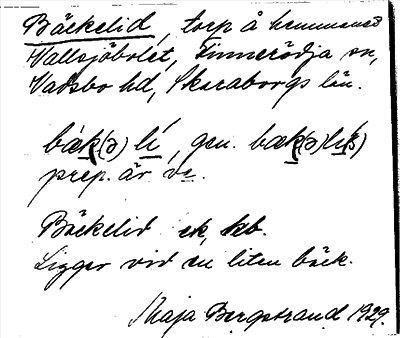 Bäckelid, torp å hemmanet
Wallsjöbolet, Finnerödja sn,
Vadsbo hd, Skaraborgs län.
bák(ə) lí, gen. bæk(ə)li(s)
prep. är ve.
Bäckelid ek, kb.
Ligger vid en liten bäck.
Maja Bergstrand 1929.